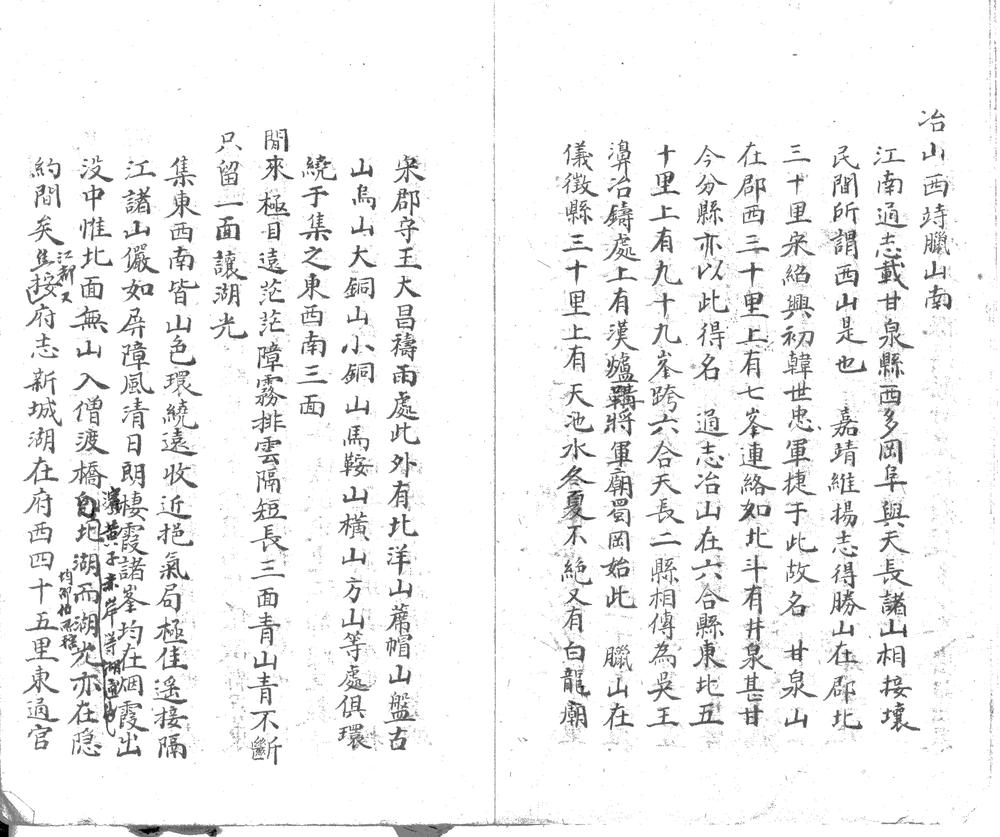 冶山西峙臘山南
江南通志載甘泉縣西多岡阜與天長諸山相接壤
民間所謂西山是也　嘉靖維揚志得勝山在郡北
三十里宋紹興初韓世忠軍捷于此故名　甘泉山
在郡西三十里上有七峯連絡如北斗有井泉甚甘
今分縣亦以此得名　通志冶山在六合縣東北五
十里上有九十九峯跨六合天長二縣相傳為吳王
濞冶鑄處上有漢爐鞲將軍廟蜀岡始此　臘山在
儀徵縣三十里上有天池水冬夏不絕又有白龍廟
宋郡守王大昌禱雨處此外有北洋山蓆帽山盤古
山烏山大銅山小銅山馬鞍山橫山方山等處俱環
繞于集之東西南三面
閒來極目遠茫茫障霧排雲隔短長三面青山青不斷
只留一面讓湖光
集東西南皆山色環繞遠收近挹氣局極佳遙接隔
江諸山儼如屏障風清日朗棲霞諸峯均在烟霞出
没中惟北面無山入僧渡橋自北湖而湖光亦在隐
濱黄子赤岸等湖
約間矣
按府志新城湖在府西四十五里東通官
江都又